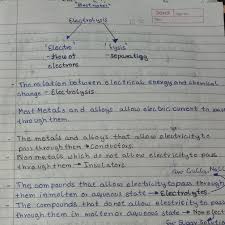 Electrolysis
Electro lysis
→ flow of → Separating
electrons
- The relation between electrical energy and chemical
change → Electrolysis
- Most Metals and alloys allow electric current to pass
through them.
- The metals and alloys that allow electricity to
pass through them → Conductors.
- Non metals which do not allow electricity to pass
through them → Insulators
- The compounds that allow electricity to pass through
them in molten or aqueous state → Electrolytes
The compounds that do not allow electricity to pass
through them in molten or aqueous state →